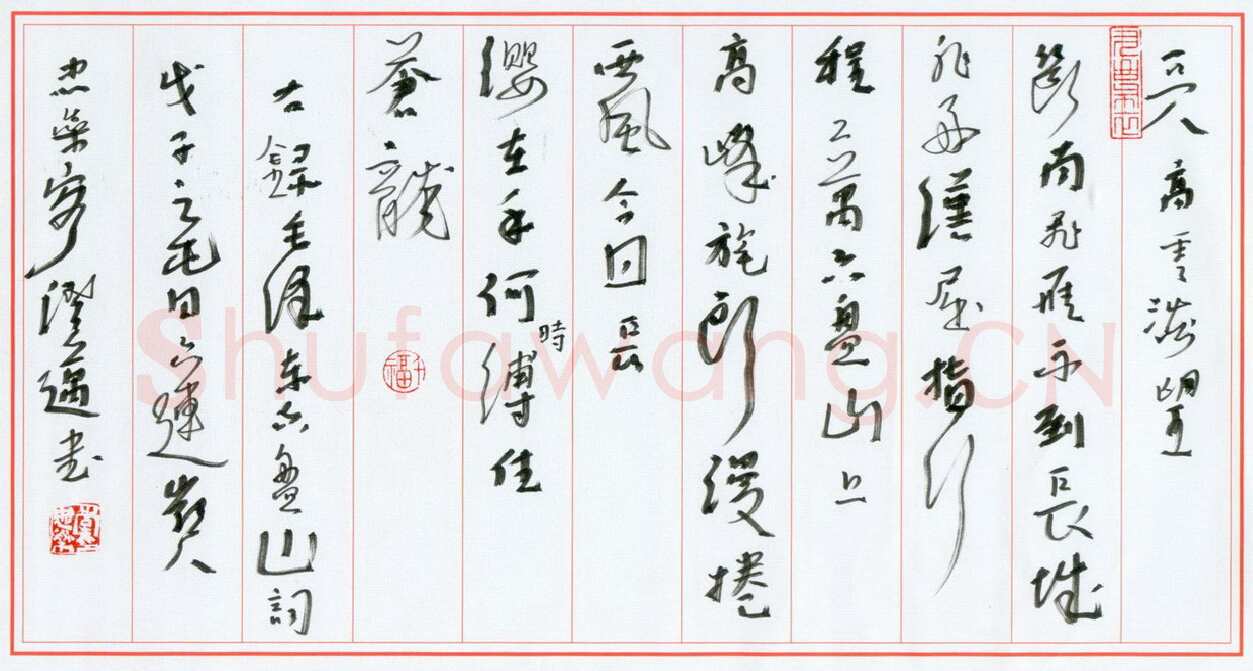 天高雲淡望
斷南飛雁不到長城
非好漢屈指行
程二萬六盤山上
高峰旄頭漫捲
西風今日長
纓在手何時縛住
蒼龍
右錄毛澤東六盤山詞
戊子之春日六連嶺人
客澄邁書
Shufawang.CN